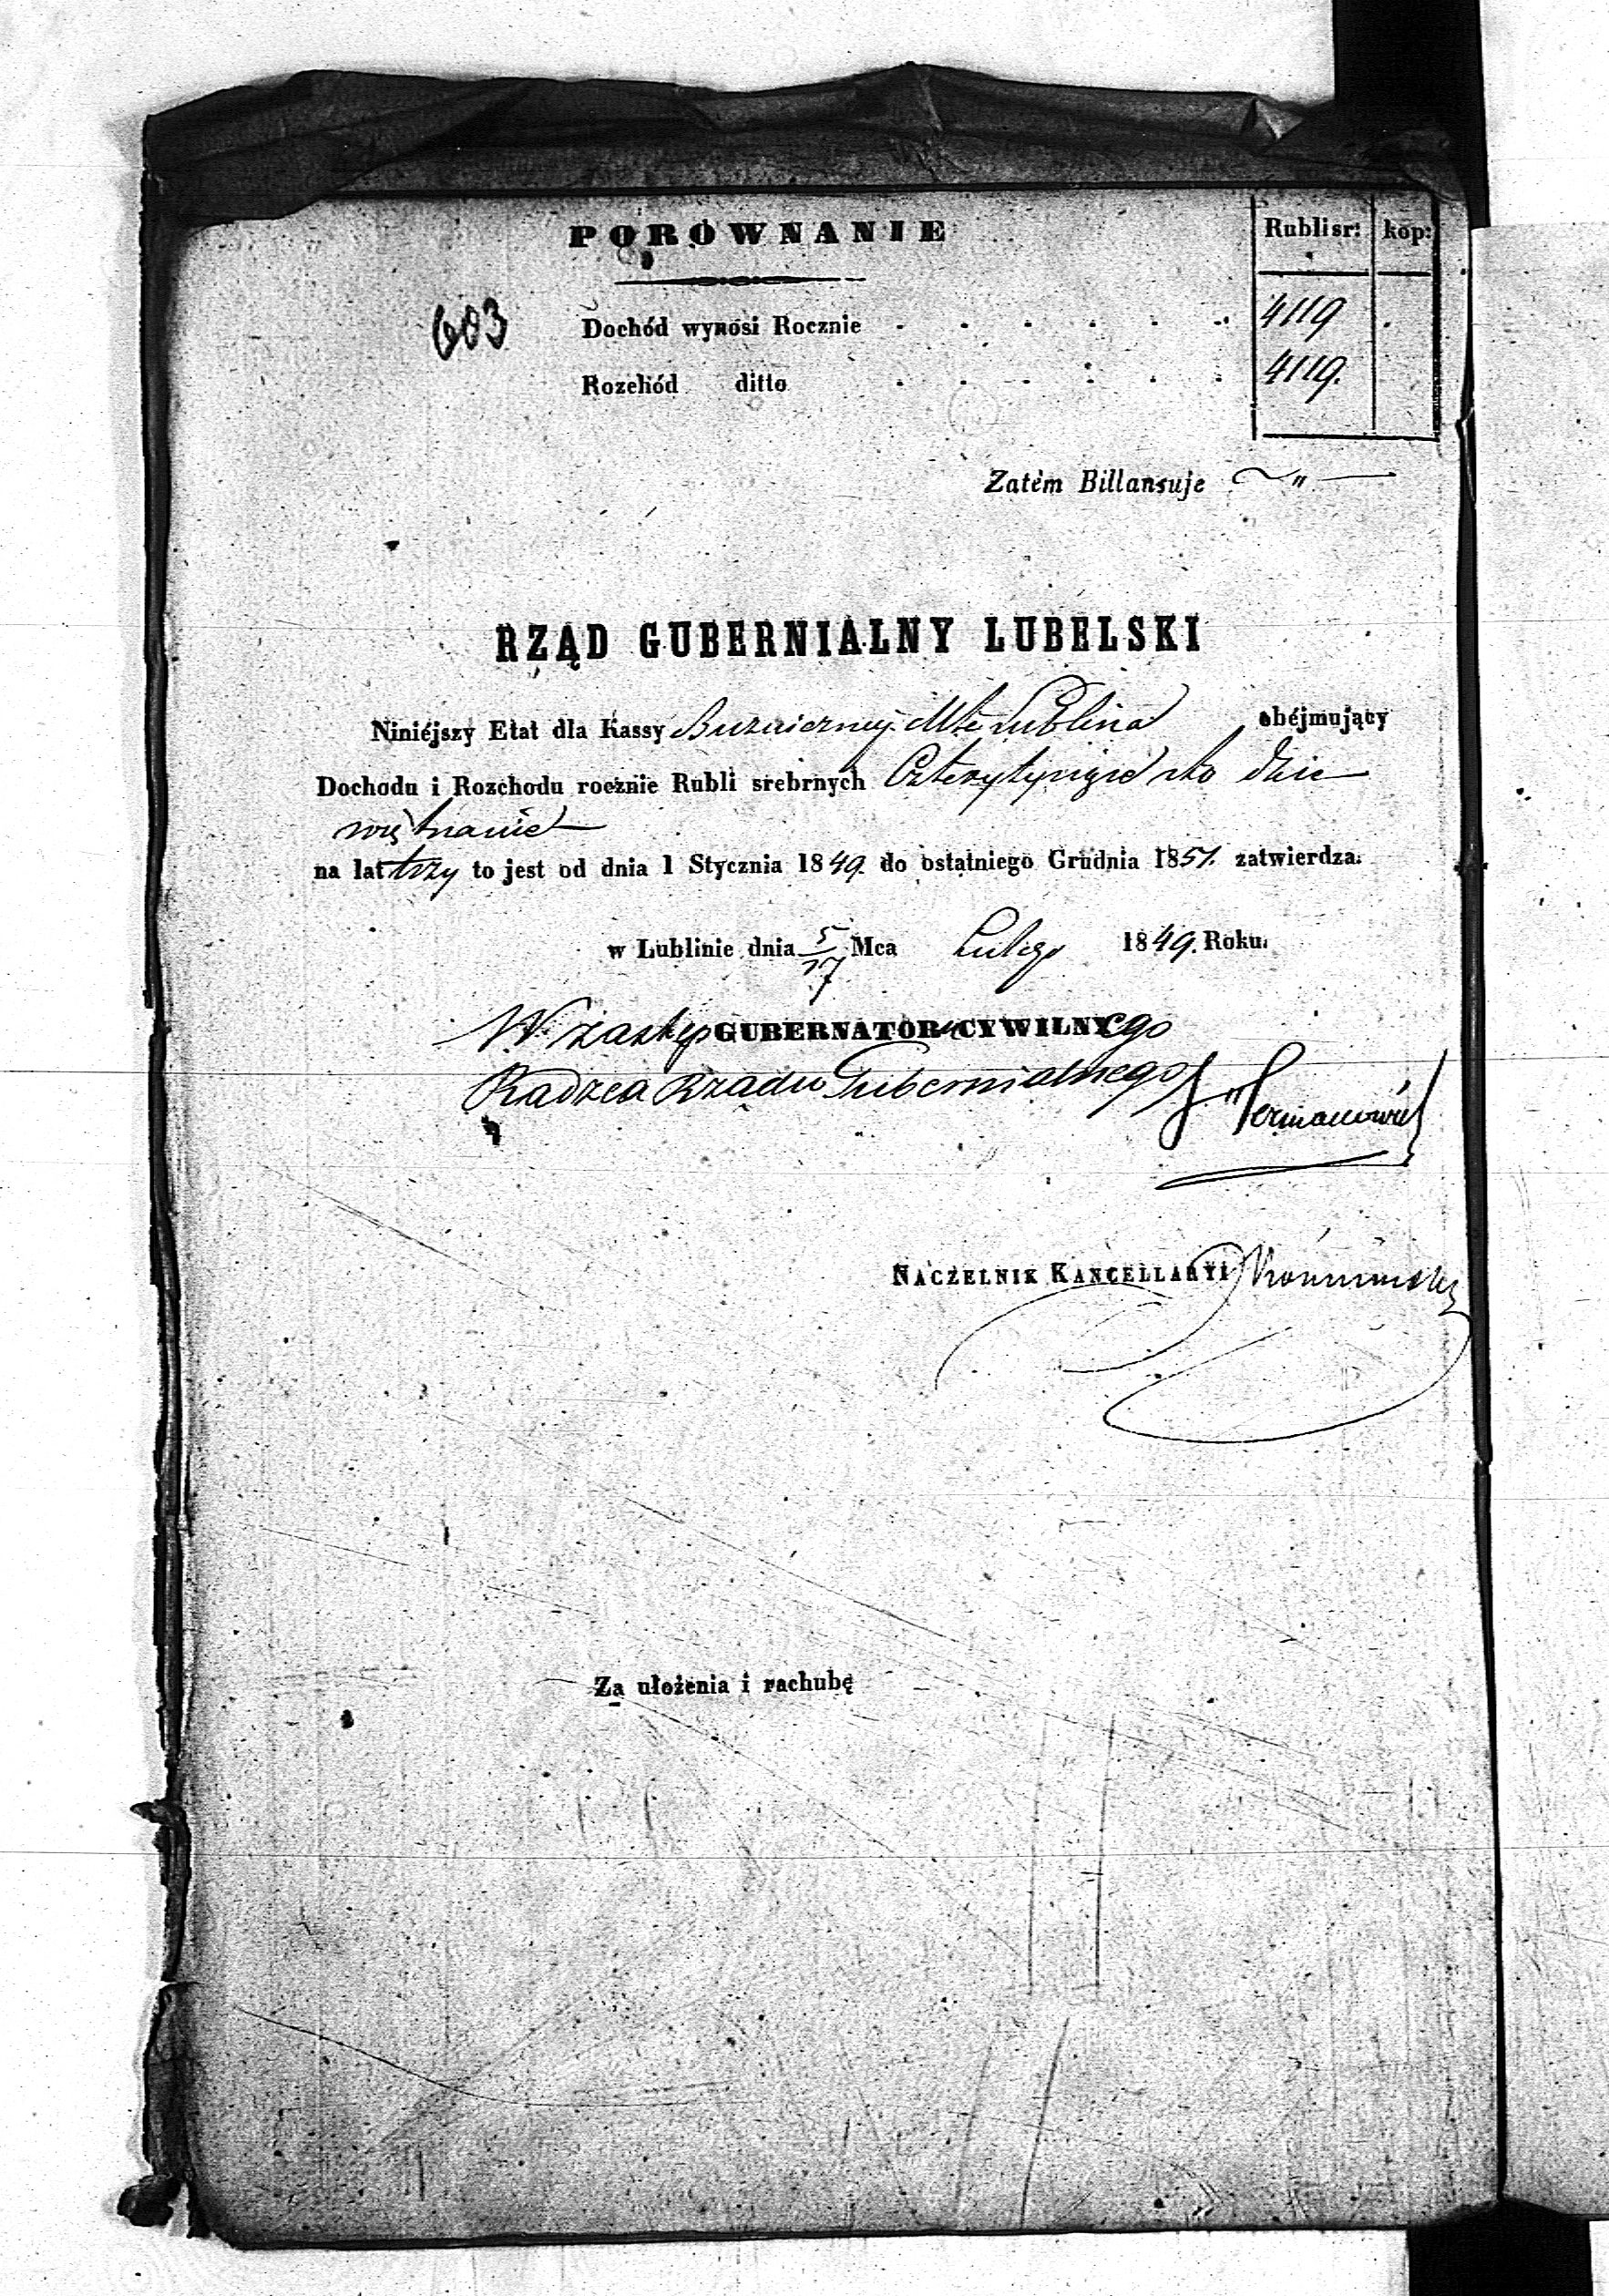 PORÓWNANIE
Rubli sr: kop:
603
Dochód wynosi Rocznie 4119
Rozchód ditto 4119.
Zatém Billansuje "
RZĄD GUBERNIALNY LUBELSKI
Niniéjszy Etat dla Kassy Bużniczney Mta Lublina obéjmujący
Dochodu i Rozchodu rocznie Rubli srebrnych Czterytysiące sto dzie
więtnaście
na lat trzy to jest od dnia 1 Stycznia 1849. do ostatniego Grudnia 1851. zatwierdza.
w Lublinie dnia 5/17 Mca Lutego 1849. Roku.
W zastęp GUBERNATORA CYWILNEgo
Radzca Rządu Gubernialnego J Hermanowicz
NACZELNIK KANCELLARYI
Za ułożenia i rachubę